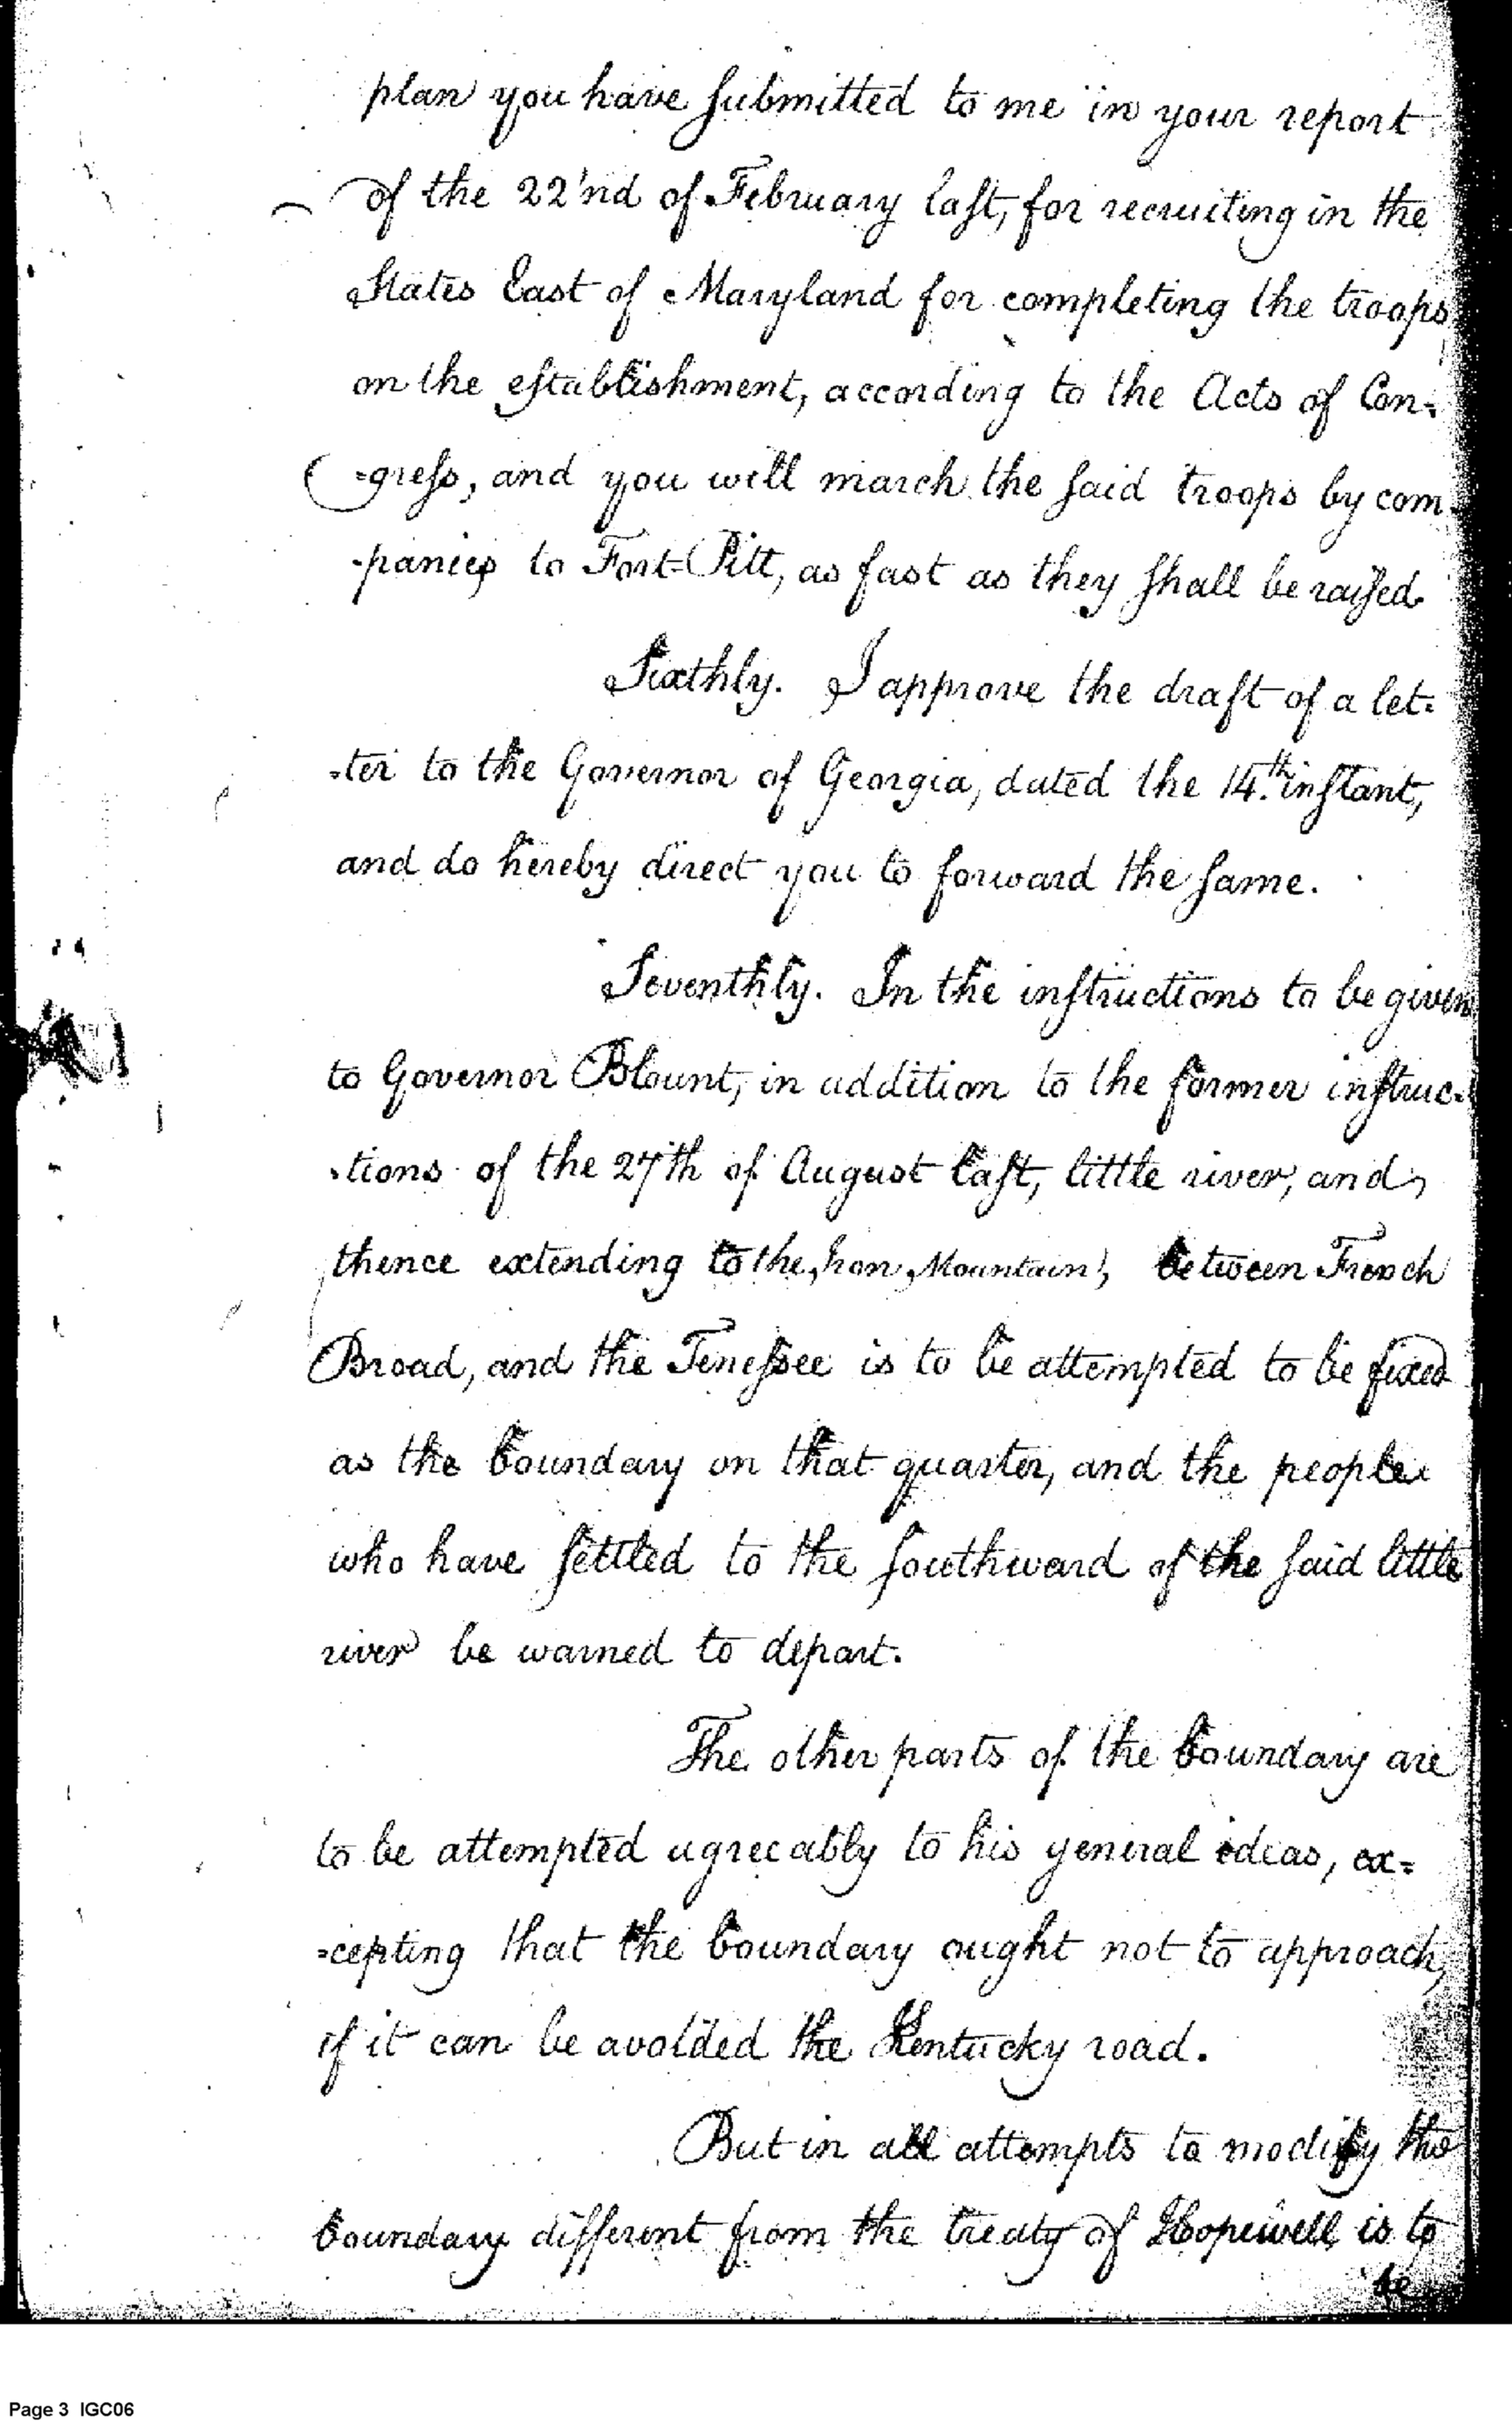 plan you have submitted to me in your report
of the 22'nd of February last, for recruiting in the
States East of Maryland for completing the troops
on the establishment, according to the Acts of Con-
-gress, and you will march the said troops by com
-panies to Fort-Pitt, as fast as they shall be raised.
Sixthly. I approve the draft of a let-
-ter to the Governor of Georgia, dated the 14.th instant,
and do hereby direct you to forward the same.
Seventhly. In the instructions to be given
to Governor Blount, in addition to the former instruc-
-tions of the 27th of August last, little river, and
thence extending to the Iron Mountain, between French
Broad, and the Tenessee is to be attempted to be fixed
as the boundary on that quarter, and the people
who have settled to the southward of the said little
river be warned to depart.
The other parts of the boundary are
to be attempted agreeably to his general ideas, ex-
-cepting that the boundary ought not to approach,
if it can be avoided the Kentucky road.
But in all attempts to modify the
boundary different from the treaty of Hopewell is to
be
Page 3 IGC06